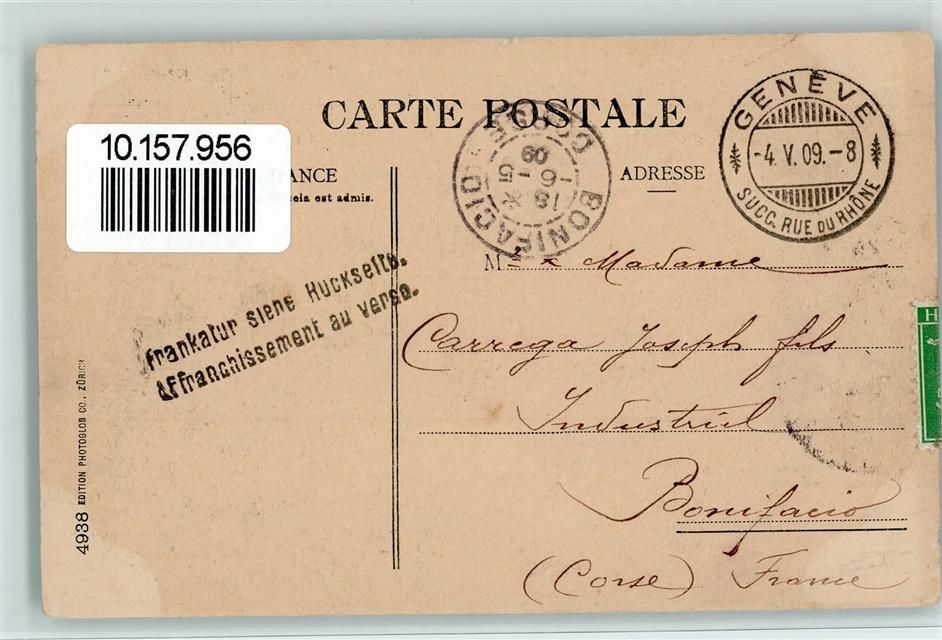 CARTE POSTALE
10.157.956
ANCE
ADRESSE
cela est admis.
GENÈVE
-4.V.09.-8
SUCC. RUE DU RHÔNE
BONIFACIO
CORSE
18
6 - 5
09
Frankatur siehe Rückseite.
Affranchissement au verso.
M
Madame
Carrega Joseph fils
Industriel
Bonifacio
(Corse) France
4938 EDITION PHOTOGLOB CO., ZÜRICH
H